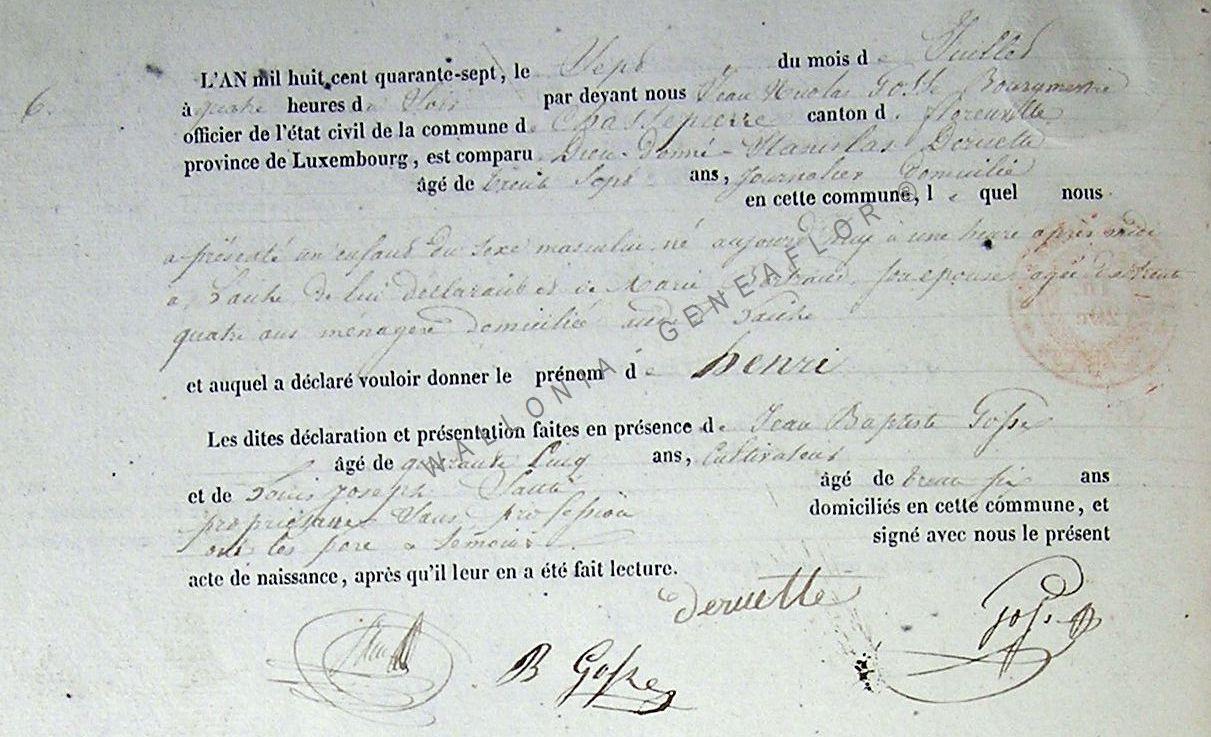 6.
L'AN mil huit cent quarante-sept, le Sept du mois d e Juillet
à quatre heures d u Soir par devant nous Jean Nicolas Gosse Bourgmestre
officier de l'état civil de la commune d e Chassepierre canton d e florenville
province de Luxembourg, est comparu Dieu-donné-Stanislas Deruette
âgé de trente Sept ans, journalier domicilié
en cette commune, l e quel nous
a présenté un enfant du sexe masculin né aujourd'huy à une heure après midi
a Laiche de lui déclarant et de Marie sa épouse agée de trente
quatre ans ménagère domiciliée audit Laiche
et auquel a déclaré vouloir donner le prénom d e henri
Les dites déclaration et présentation faites en présence d e Jean Baptiste Gosse
âgé de quarante Cinq ans, Cultivateur
et de Louis Joseph âgé de trente six ans
proprietaire Sans profession domiciliés en cette commune, et
ont les pere & temoins signé avec nous le présent
acte de naissance, après qu'il leur en a été fait lecture.
deruette
B Gosse
Gosse
WALLONIA GENEAFLOR ®